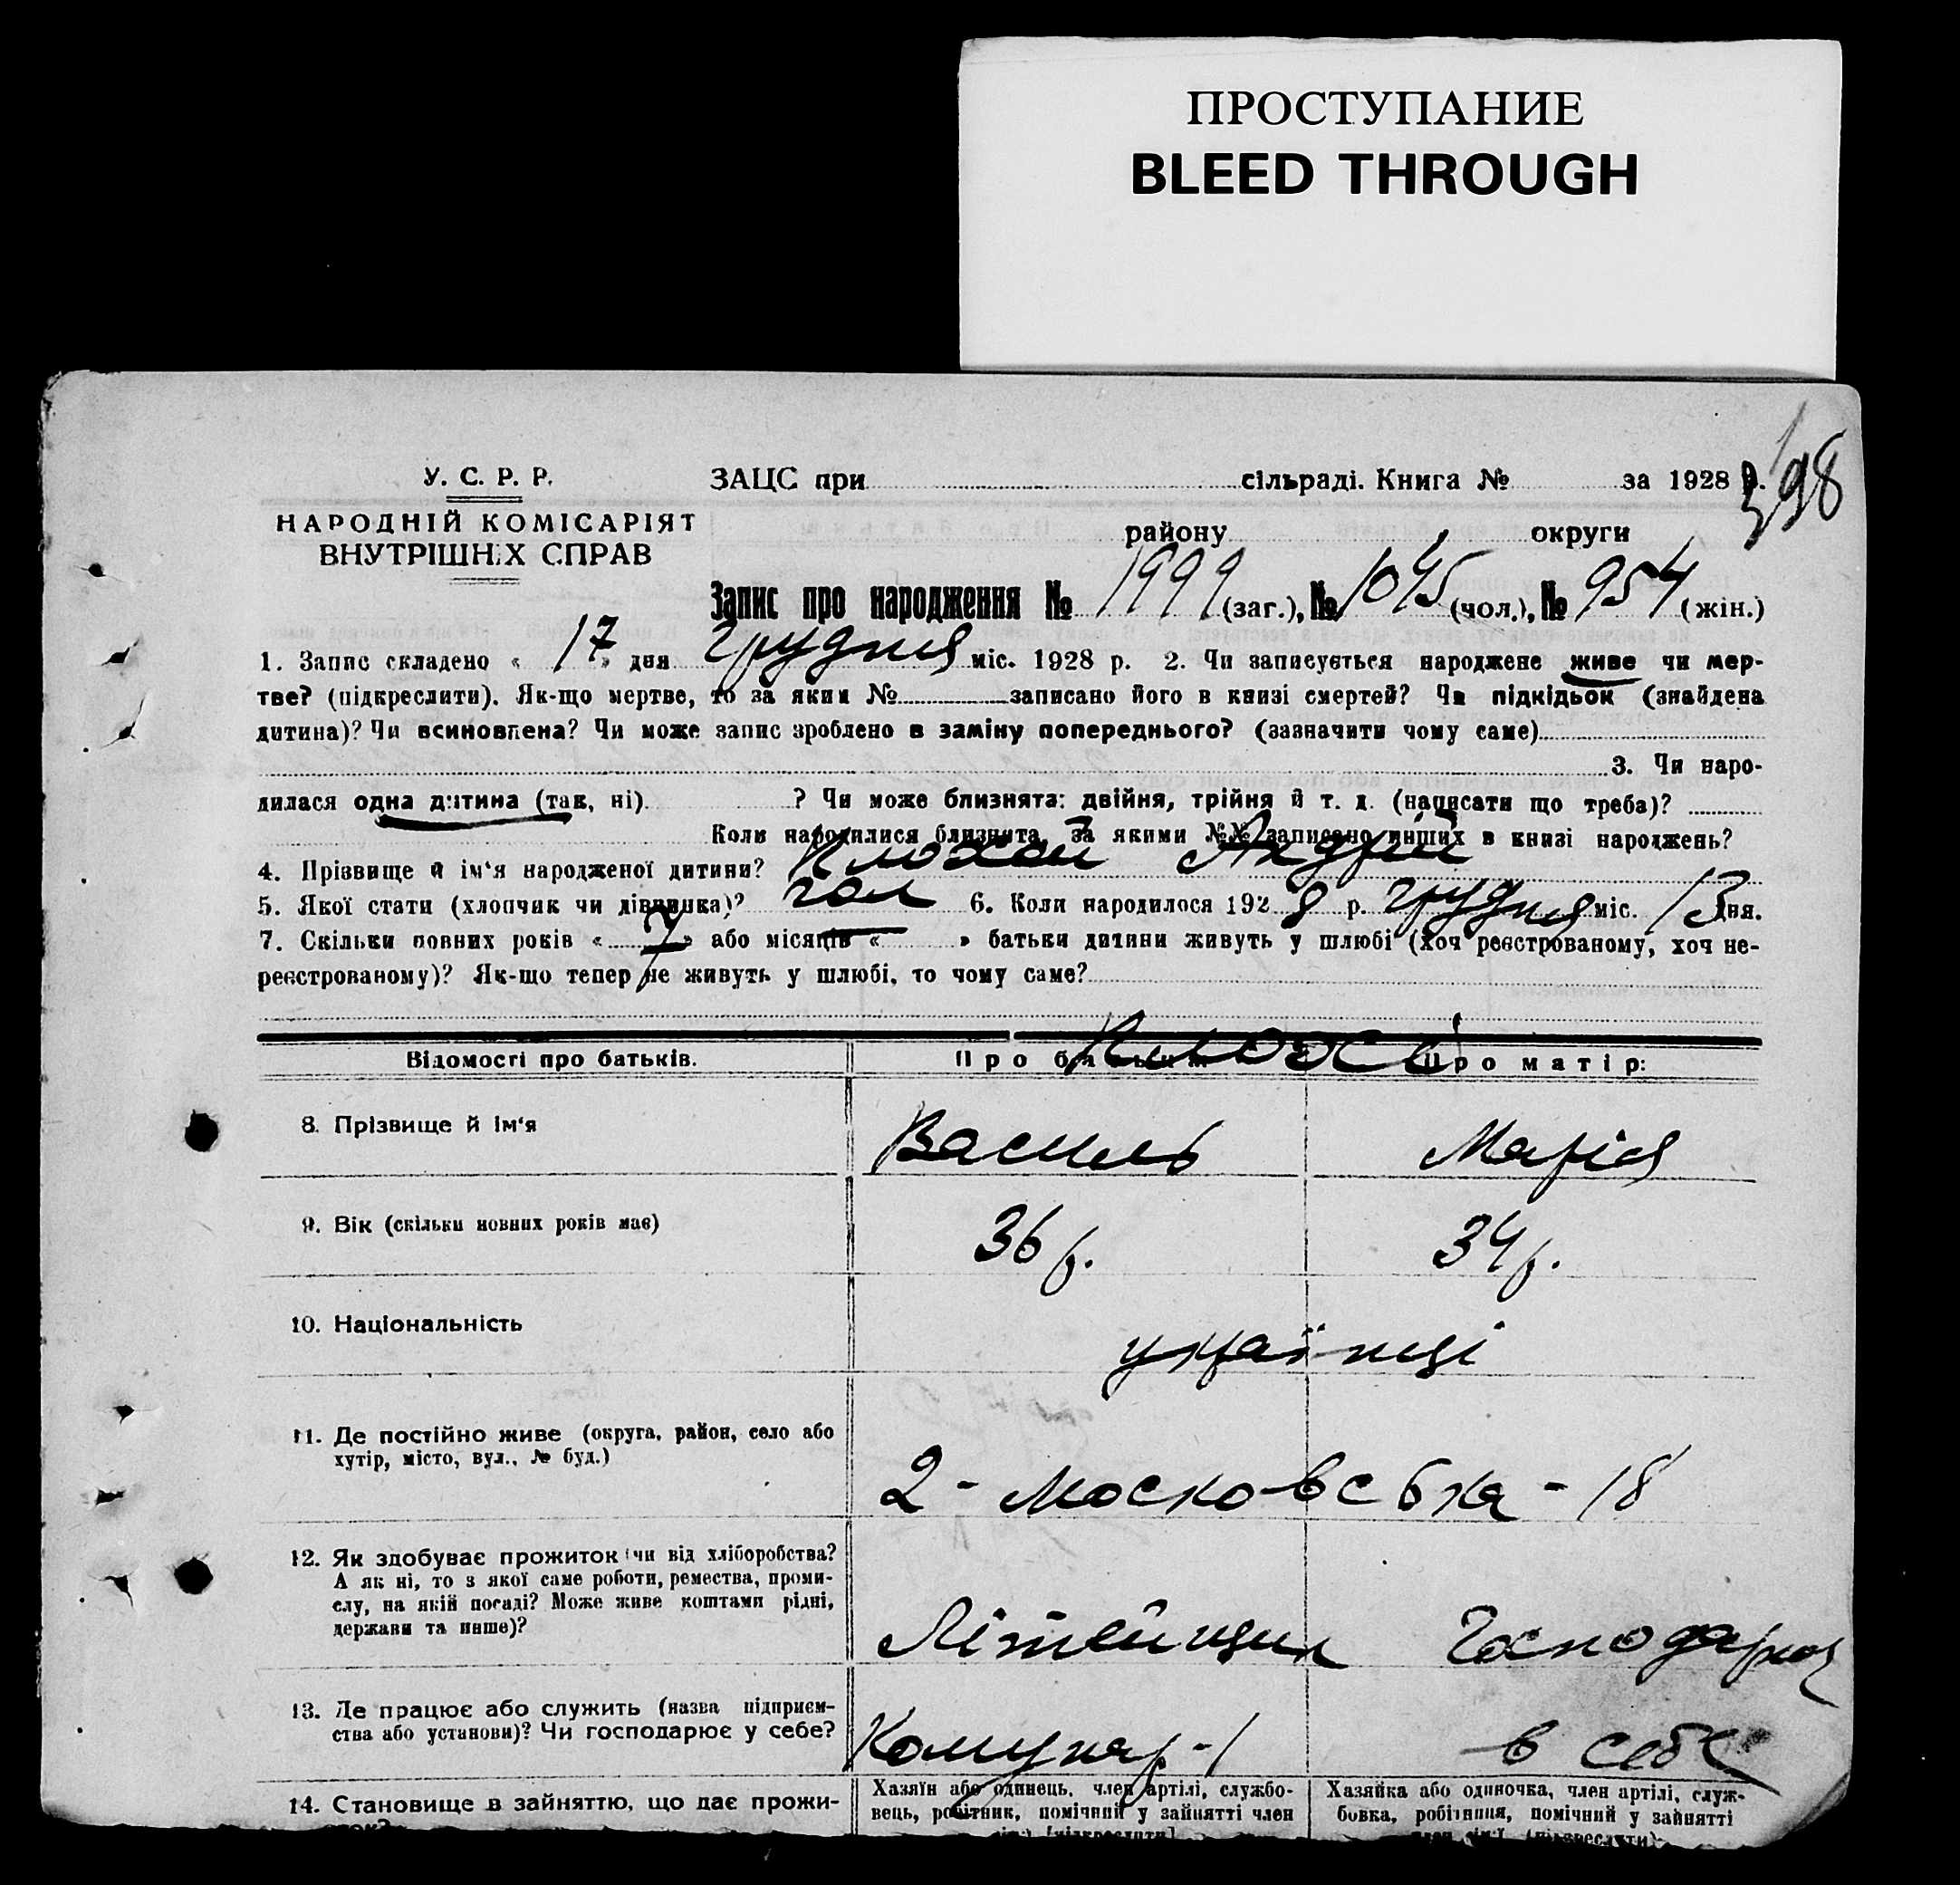 ПРОСТУПАНИЕ
BLEED THROUGH
398
У. С. Р. Р.
НАРОДНІЙ КОМІСАРІЯТ
ВНУТРІШНІХ СПРАВ
ЗАЦС при сільраді. Книга № за 1928 р.
району округи
Запис про народження № 1999 (заг.), № 1045 (чол.), № 954 (жін.)
1. Запис складено « 17 » дня грудня міс. 1928 р. 2. Чи записується народжене живе чи мер-
тве? (підкреслити). Як-що мертве, то за яким № записано його в книзі смертей? Чи підкідьок (знайдена
дитина)? Чи всиновлена? Чи може запис зроблено в заміну попереднього? (зазначити чому саме)
3. Чи наро-
дилася одна дитина (так, ні) ? Чи може близнята: двійня, трійня й т. д. (написати що треба)?
Коли народилися близнята, за якими №№ записано инших в книзі народжень?
4. Прізвище й ім'я народженої дитини? Андрій
5. Якої стати (хлопчик чи дівчинка)? чол 6. Коли народилося 192 8 р. грудня міс. 13 дня.
7. Скільки повних років « 7 » або місяців « » батьки дитини живуть у шлюбі (хоч реєстрованому, хоч не-
реєстрованому)? Як-що тепер не живуть у шлюбі, то чому саме?
Відомості про батьків.
Про батька
Про матір:
8. Прізвище й ім'я
Василь
Марія
9. Вік (скільки повних років має)
36 р.
34 р.
10. Національність
українці
11. Де постійно живе (округа, район, село або
хутір, місто, вул., № буд.)
2 - Московська - 18
12. Як здобуває прожиток (чи від хліборобства?
А як ні, то з якої саме роботи, ремества, проми-
слу, на якій посаді? Може живе коштами рідні,
держави та инше)?
Літейщик
Господарює
13. Де працює або служить (назва підприєм-
ства або установи)? Чи господарює у себе?
Комунар - 1
в себе
14. Становище в зайняттю, що дає прожи-
Хазяїн або одинець, член артілі, службо-
вець, робітник, помічний у зайнятті член
Хазяйка або одиночка, член артілі, служ-
бовка, робітниця, помічний у зайнятті